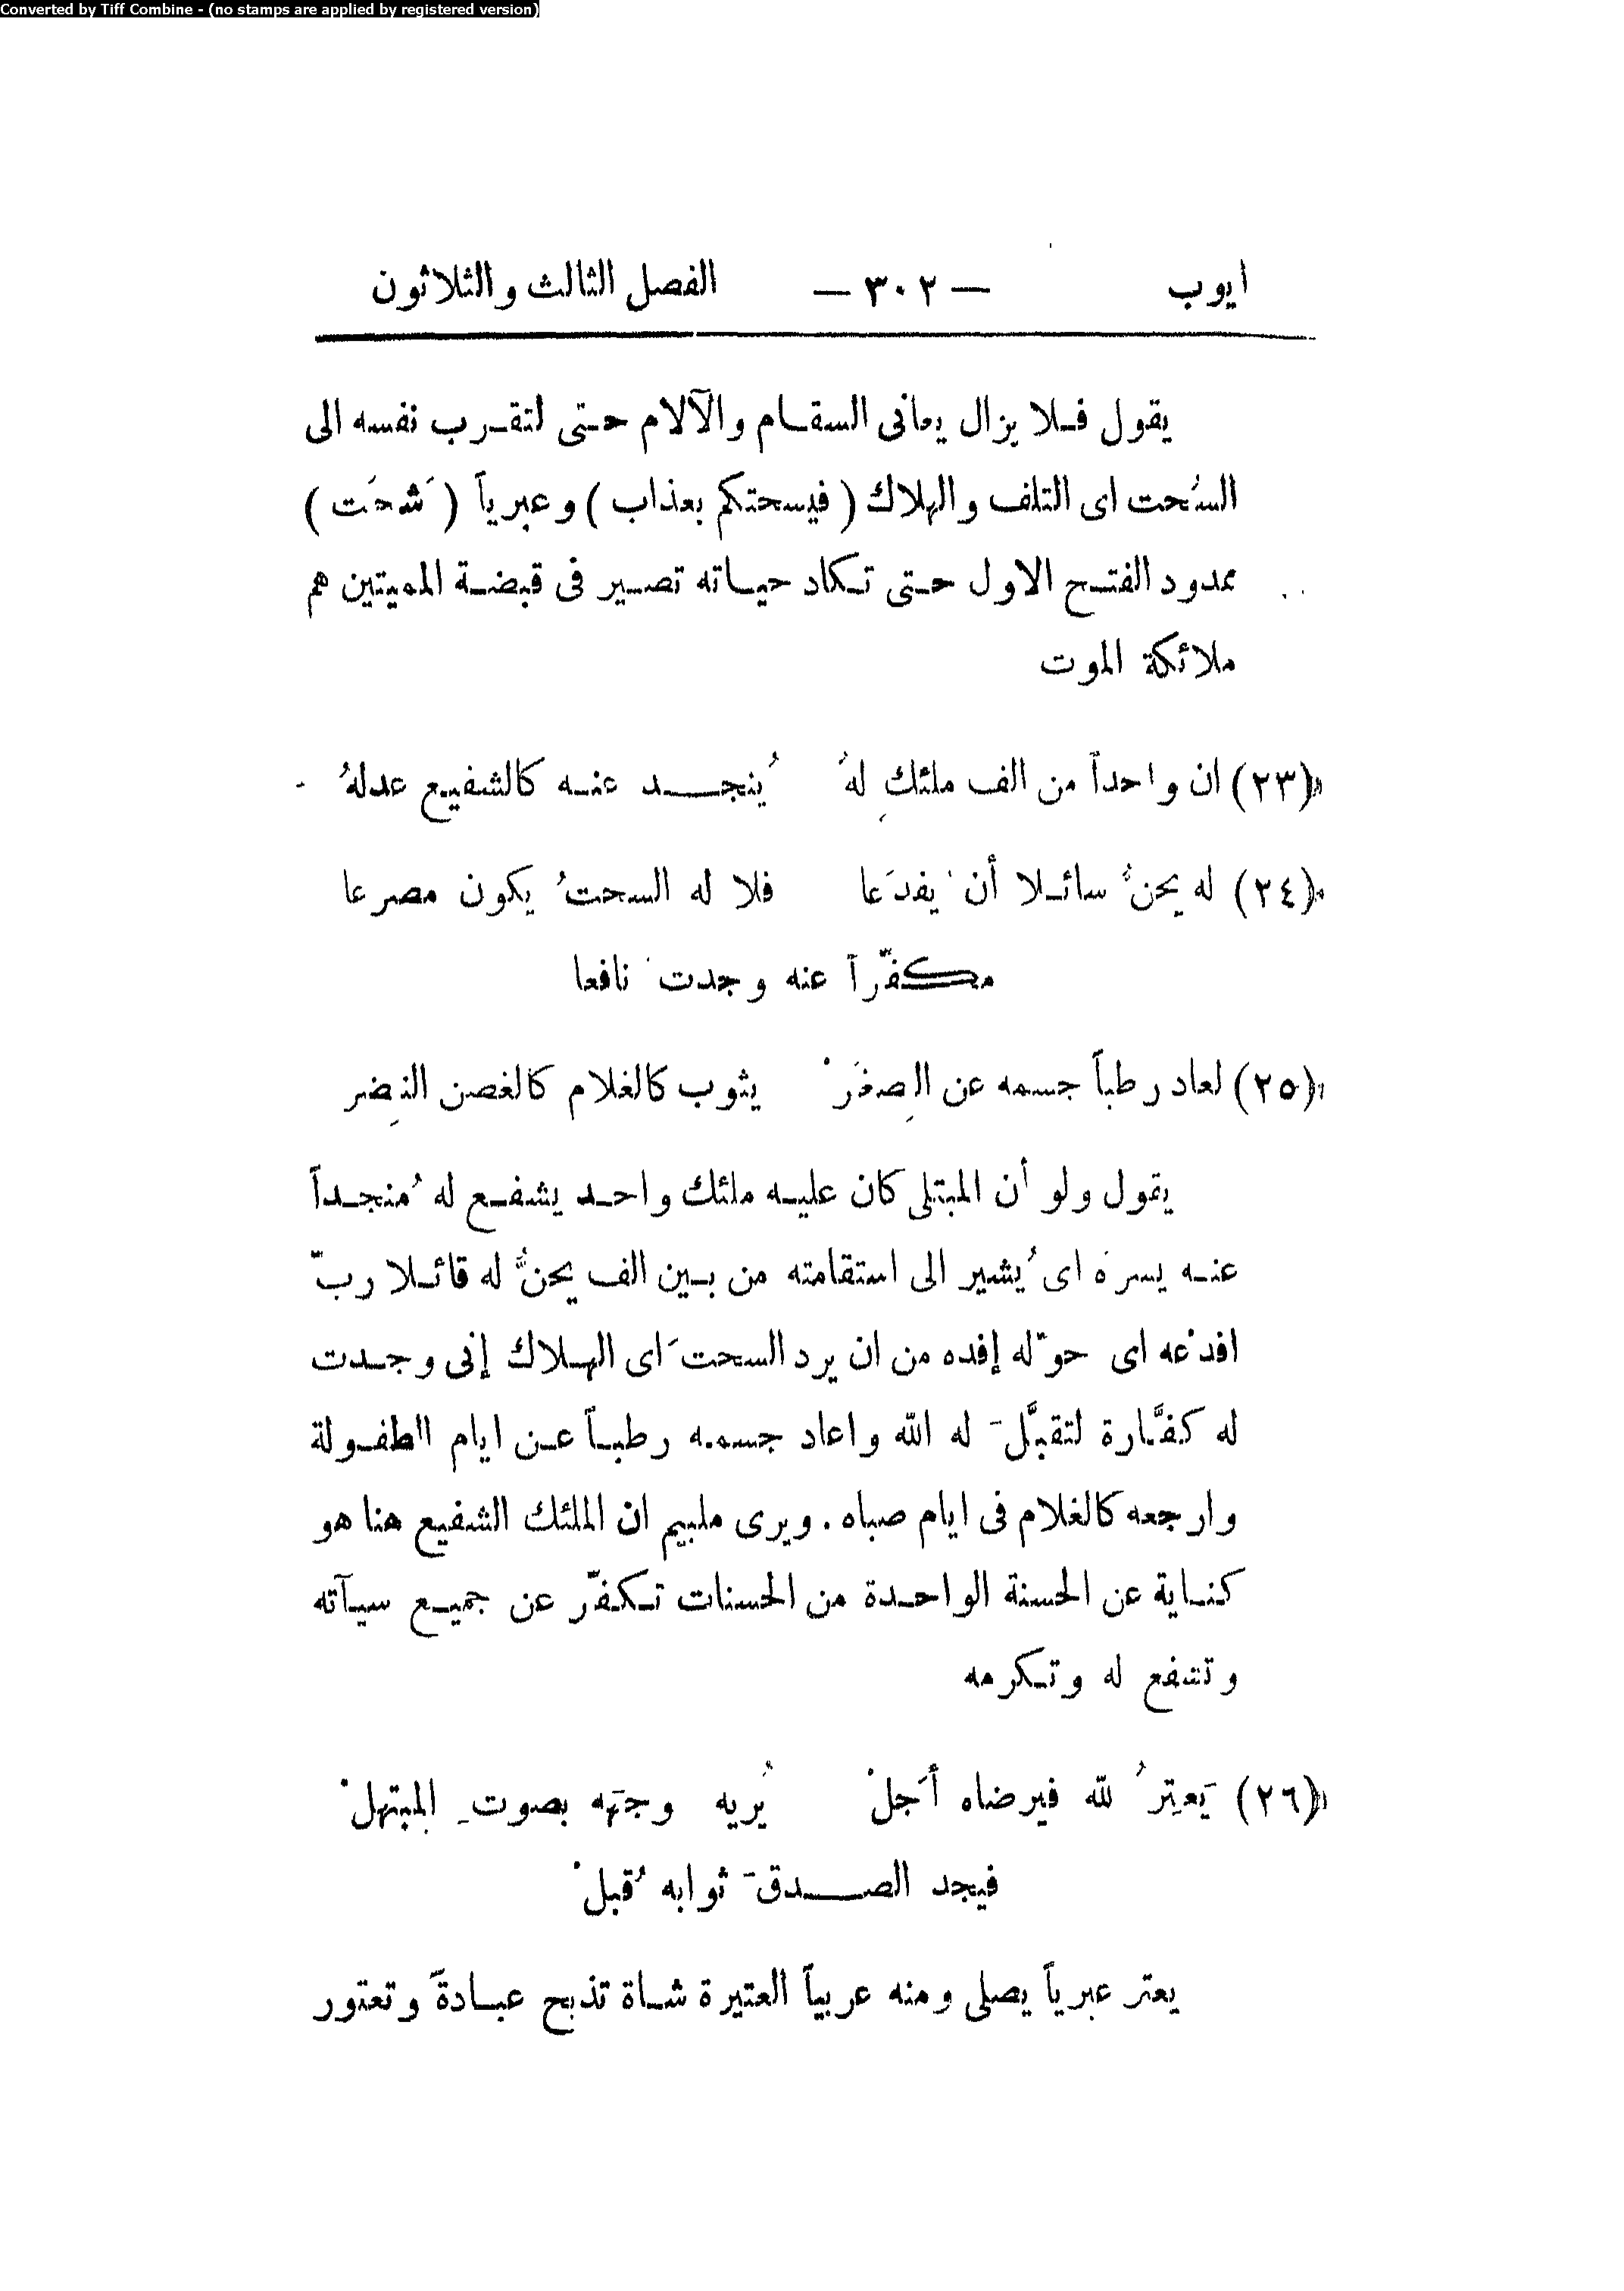 Converted by Tiff Combine - (no stamps are applied by registered version)
ايوب — ٣٠٢ — الفصل الثالث والثلاثون
يقول فلا يزال يعانى السقام والآلام حتى لتقرب نفسه الى
السُحت اى التلف والهلاك (فيسحتكم بعذاب) وعبرياً (شَحَت)
ممدود الفتح الاول حتى تكاد حياته تصير فى قبضة المميتين هم
ملائكة الموت
(٢٣) ان واحداً من الف ملئكِ لهُ يُنجد عنه كالشفيع عدلهُ
(٢٤) له يحنُّ سائلا أن يفدَعا فلا له السحتُ يكون مصرعا
مكفّراً عنه وجدت نافعا
(٢٥) لعاد رطباً جسمه عن الصِغَرْ يثوب كالغلام كالغصن النضِر
يقول ولو أن المبتلى كان عليه ملئك واحد يشفع له مُنجداً
عنه يسره اى يُشير الى استقامته من بين الف يحنُّ له قائلا ربّ
افدعْه اى حوّله إفده من ان يرد السحتَ اى الهلاك إنى وجدت
له كفَّارة لتقبَّلَ له الله واعاد جسمه رطباً عن ايام الطفولة
وارجعه كالغلام فى ايام صباه . ويرى ملبيم ان الملئك الشفيع هنا هو
كناية عن الحسنة الواحدة من الحسنات تكفّر عن جميع سيآته
وتشفع له وتكرمه
(٢٦) يَعتِرُ لله فيرضاه أجَلْ يُريه وجهَه بصوتِ المبتهِلْ
فيجد الصدقَ ثوابه قُبلْ
يعتر عبرياً يصلى ومنه عربياً العتيرة شاة تذبح عبادةً وتعتور